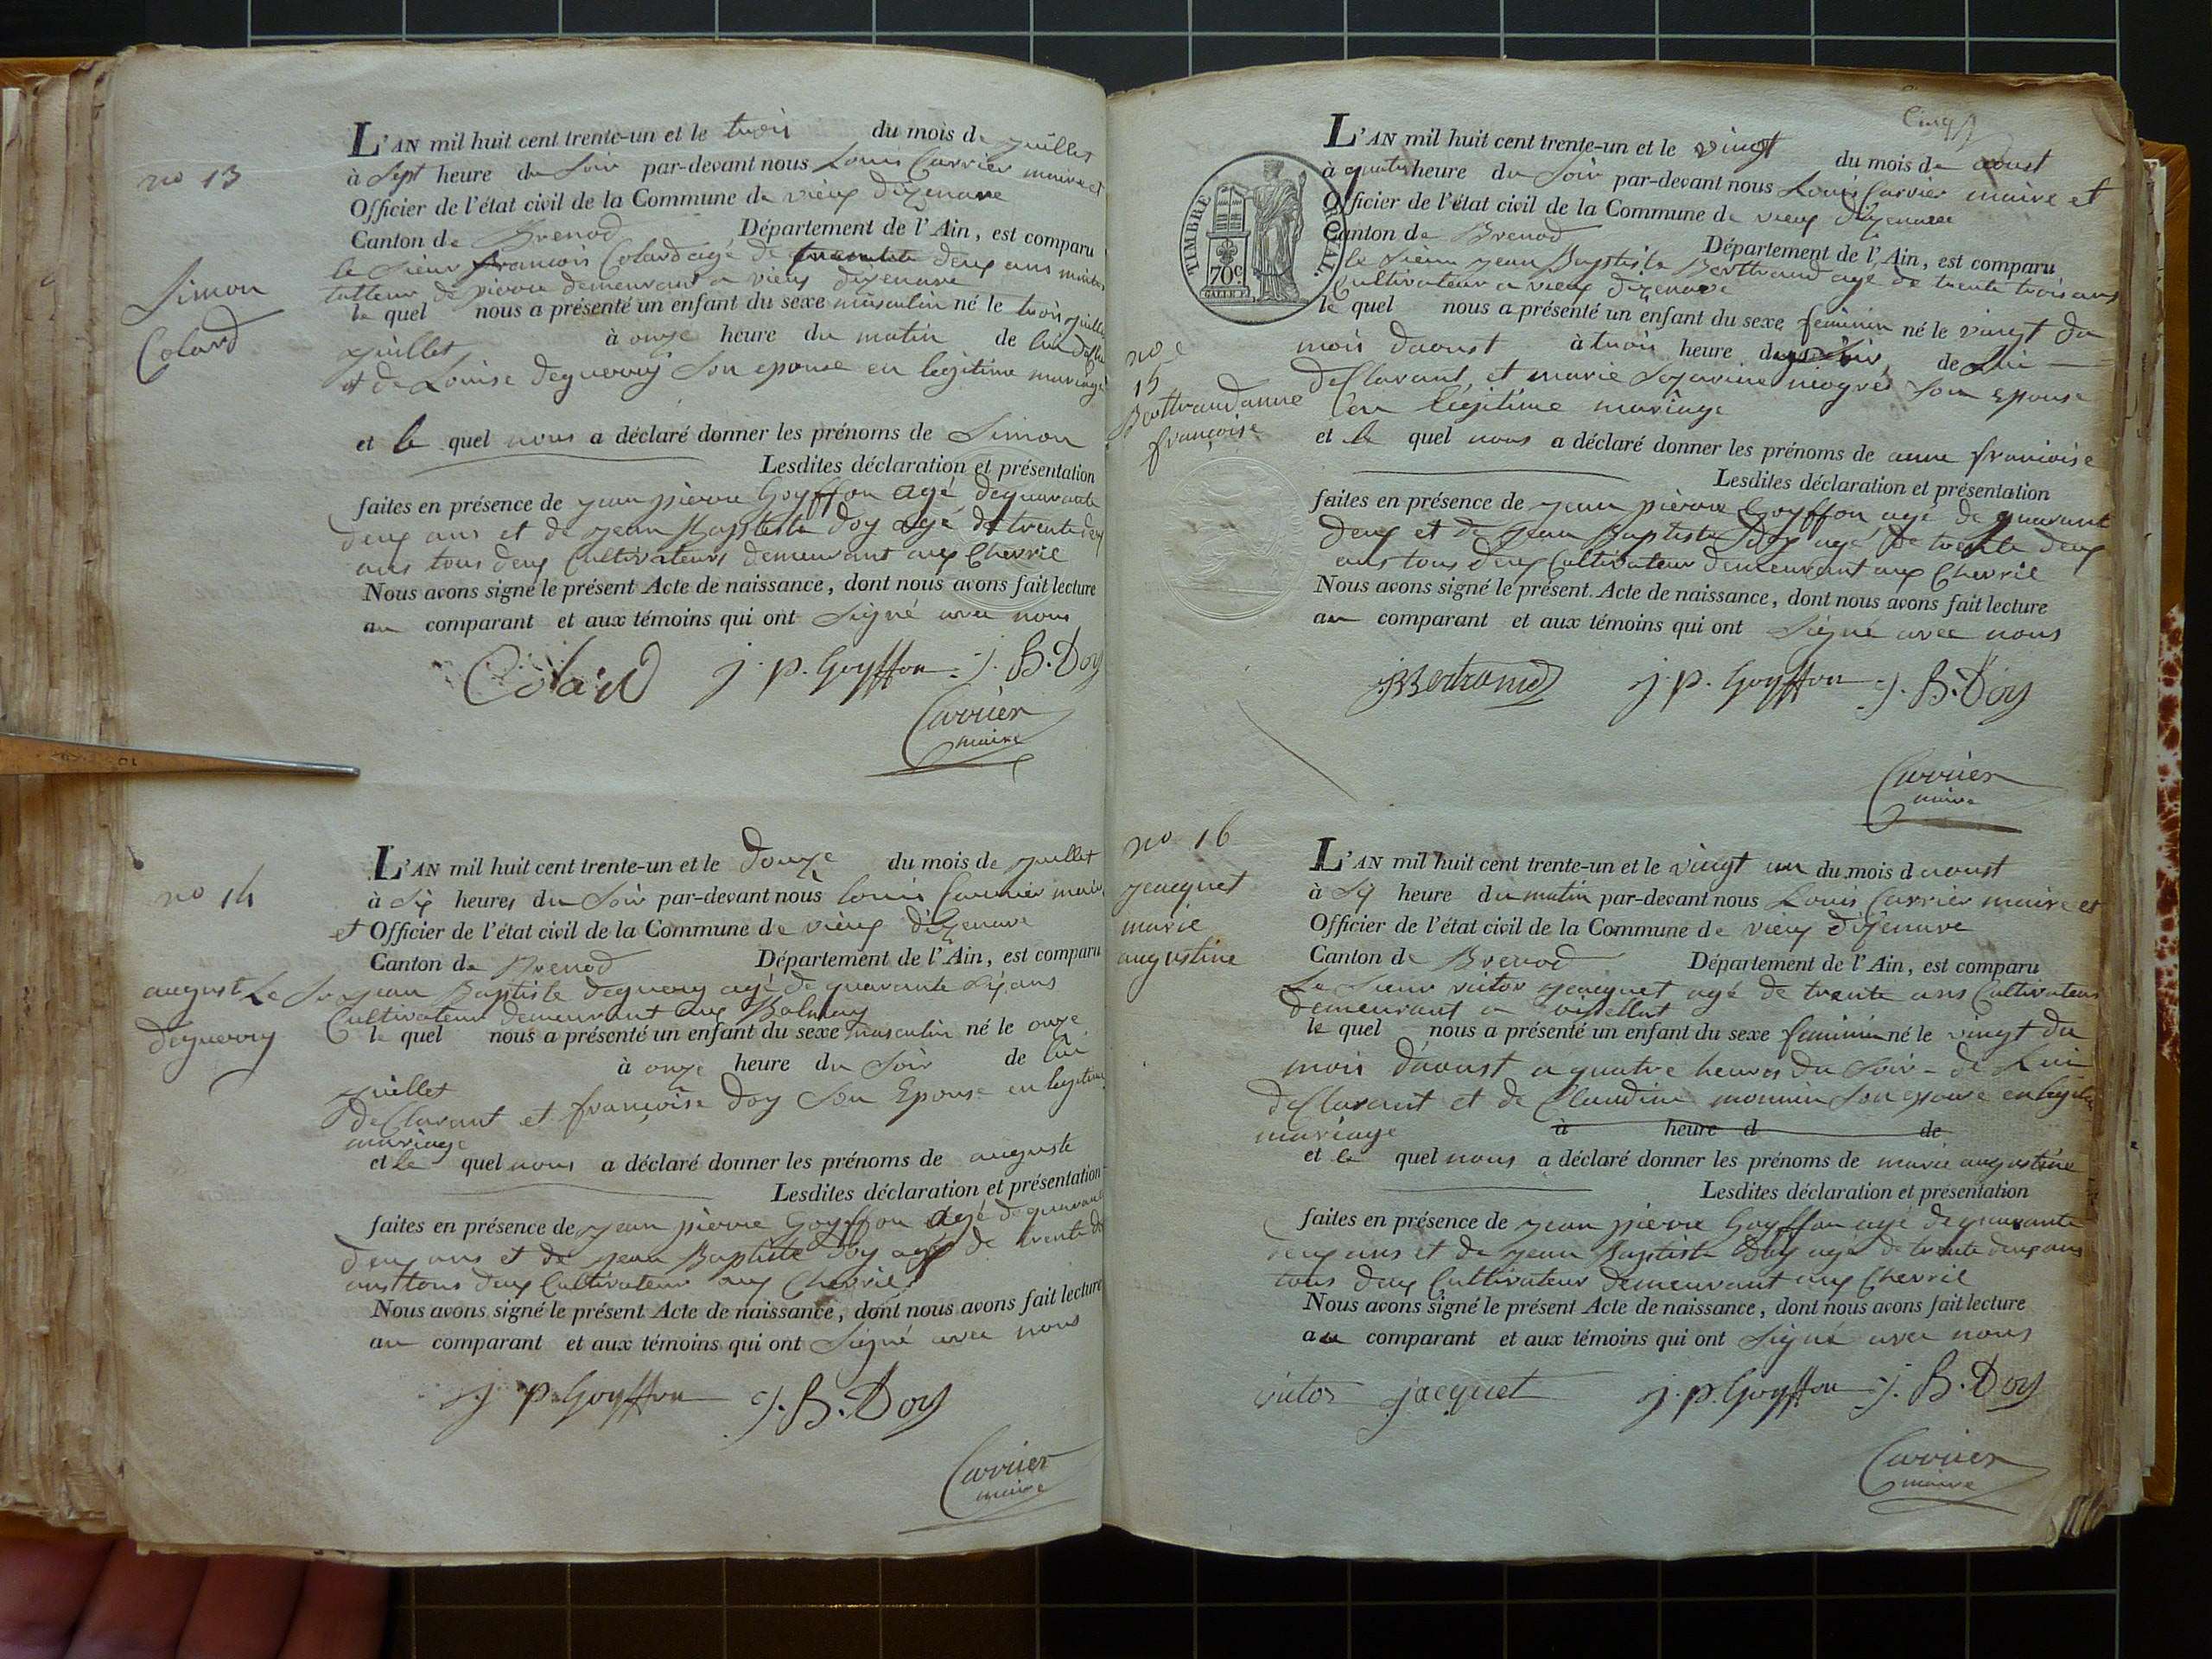 no 13
Simon
Colard
L'AN mil huit cent trente-un et le trois du mois de juillet
à Sept heure du Soir par-devant nous Louis Carrier maire et
Officier de l'état civil de la Commune de vieux dizenave
Canton de Brenod Département de l'Ain, est comparu
le Sieur francois Colard agé de deux ans
tailleur de pierre demeurant a vieux dizenave
le quel nous a présenté un enfant du sexe masculin né le trois juillet
juillet à onze heure du matin de lui
et de Louise deguerry Son epouse en legitime mariage
et le quel nous a déclaré donner les prénoms de Simon
Lesdites déclaration et présentation
faites en présence de jean pierre Goyffon agé de quarante
deux ans et de jean Baptiste Doy agé de trente deux
ans tous deux Cultivateurs demeurant aux Chevril
Nous avons signé le présent Acte de naissance, dont nous avons fait lecture
au comparant et aux témoins qui ont Signé avec nous
Colard j. p. Goyffon j. B. Doy
Carrier
maire
no 14
august
deguerry
L'AN mil huit cent trente-un et le douze du mois de juillet
à Six heures du Soir par-devant nous Louis Carrier maire
et Officier de l'état civil de la Commune de vieux dizenave
Canton de Brenod Département de l'Ain, est comparu
Le Sr jean Baptiste deguerry agé de quarante Six ans
Cultivateur demeurant aux Balmay
le quel nous a présenté un enfant du sexe masculin né le onze
juillet à onze heure du Soir de lui
declarant et françoise Doy Son Epouse en legitime
mariage
et le quel nous a déclaré donner les prénoms de auguste
Lesdites déclaration et présentation
faites en présence de jean pierre Goyffon agé de quarante
deux ans et de jean Baptiste Doy agé de trente deux
ans tous deux Cultivateur aux Chevril
Nous avons signé le présent Acte de naissance, dont nous avons fait lecture
au comparant et aux témoins qui ont Signé avec nous
j. p. Goyffon j. B. Doy
Carrier
maire
Cinq
TIMBRE ROYAL.
70c.
no
15
Berttrand anne
françoise
L'AN mil huit cent trente-un et le vingt du mois de aoust
à quatre heure du Soir par-devant nous Louis Carrier maire et
Officier de l'état civil de la Commune de vieux dizenave
Canton de Brenod Département de l'Ain, est comparu
le Sieur jean Baptiste Berttrand agé de trente trois ans
Cultivateur a vieux dizenave
le quel nous a présenté un enfant du sexe feminin né le vingt du
mois daoust à trois heure du Soir de Lui
declarant et marie Sezarine niogret Son epouse
en legitime mariage
et le quel nous a déclaré donner les prénoms de anne francoise
Lesdites déclaration et présentation
faites en présence de jean pierre Goyffon agé de quarant
deux et de jean Baptiste Doy agé de trente deux
ans tous deux Cultivateur demeurant aux Chevril
Nous avons signé le présent Acte de naissance, dont nous avons fait lecture
au comparant et aux témoins qui ont Signé avec nous
JBBertrand j. p. Goyffon j. B. Doy
Carrier
maire
no 16
jacquet
marie
augustine
L'AN mil huit cent trente-un et le vingt un du mois d aoust
à Six heure du matin par-devant nous Louis Carrier maire et
Officier de l'état civil de la Commune de vieux dizenave
Canton de Brenod Département de l'Ain, est comparu
Le Sieur victor jacquet agé de trente ans Cultivateur
demeurant a oisellat
le quel nous a présenté un enfant du sexe feminin né le vingt du
mois d'aoust a quatre heures du Soir de Lui
declarant et de Claudine monnin Son epouse en legitime
mariage à heure d de
et le quel nous a déclaré donner les prénoms de marie augustine
Lesdites déclaration et présentation
faites en présence de jean pierre Goyffon agé de quarante
deux ans et de jean Baptiste Doy agé de trente deux ans
tous deux Cultivateur demeurant aux Chevril
Nous avons signé le présent Acte de naissance, dont nous avons fait lecture
au comparant et aux témoins qui ont Signé avec nous
victor jacquet j. p. Goyffon j. B. Doy
Carrier
maire